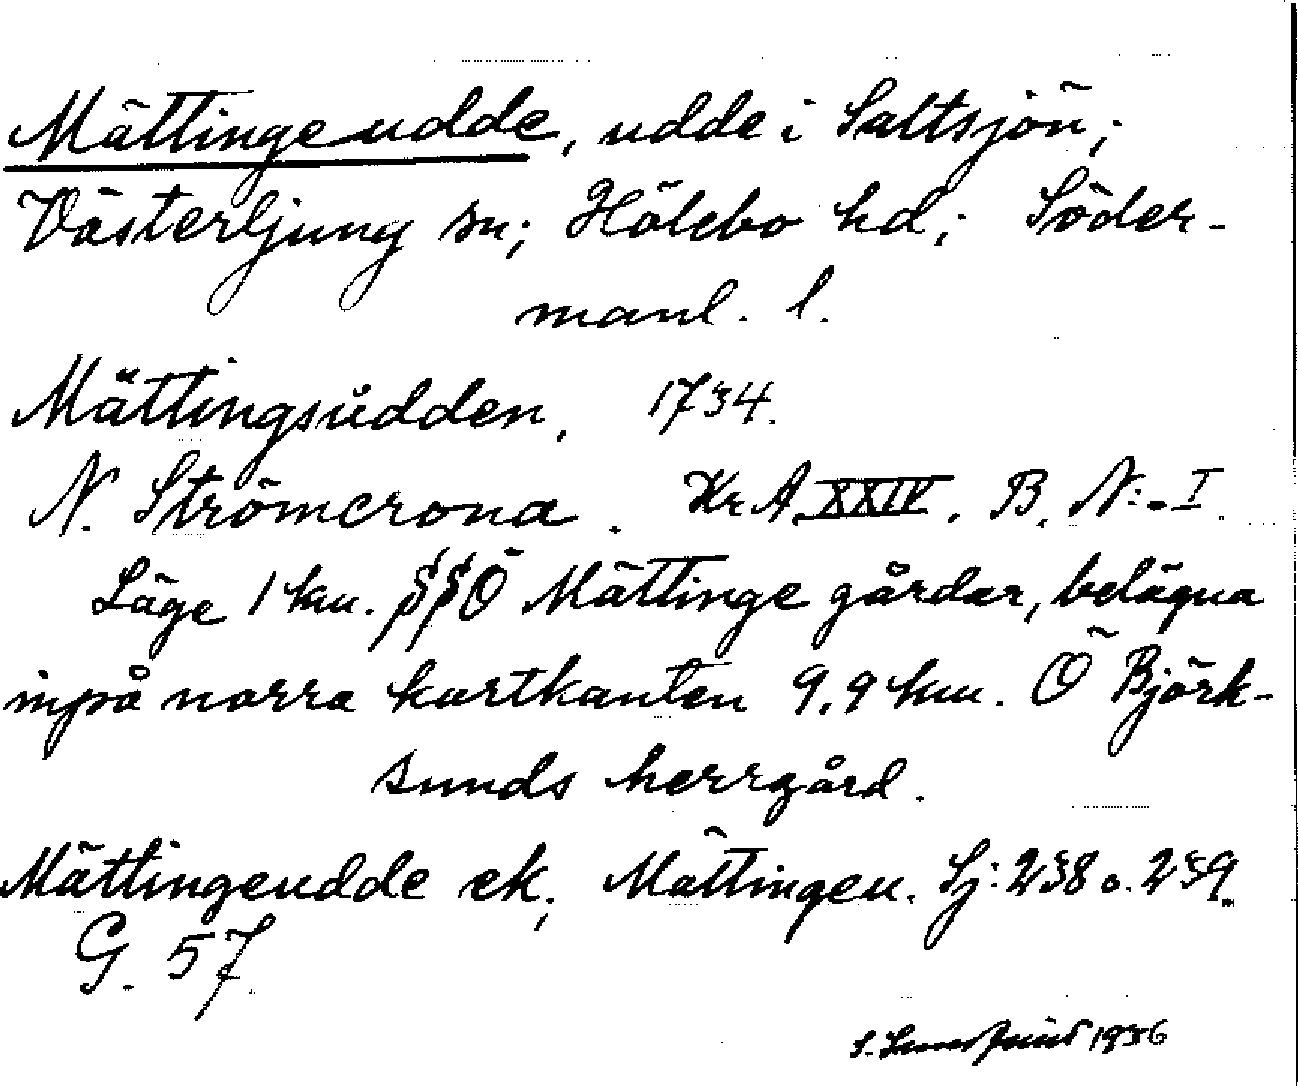 Mättingeudde, udde i Saltsjön;
Västerljung sn; Hölebo hd; Söder-
manl. l.
Mättingsudden, 1734.
N. Strömcrona. Kr A. XXIV. B. N:o I.
Läge 1 km. SSÖ Mättinge gårdar, belägna
inpå norra kartkanten 9,9 km. Ö Björk-
sunds herrgård.
Mättingeudde ek; Mättingen. Sj: 238 o. 239.
G. 57.
S. 1936